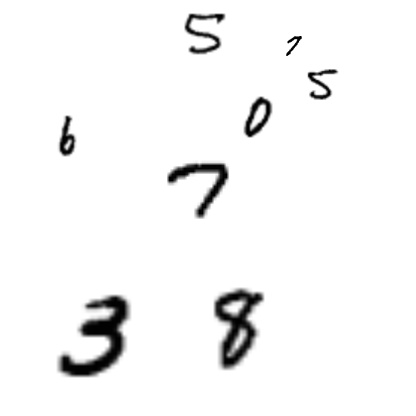 5 7
5
0
6
7
3 8